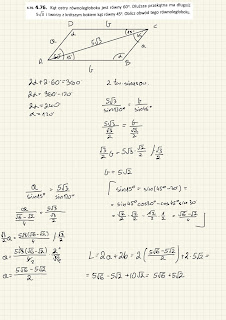 4.76. Kąt ostry równoległoboku jest równy 60°. Dłuższa przekątna ma długość
5√3 i tworzy z krótszym bokiem kąt równy 45°. Oblicz obwód tego równoległoboku.
D b C
a 5√3 a
A b B
2α + 2·60° = 360
2α = 360 - 120
2α = 240
α = 120
5√3/sin120° = b/sin45°
√3/2 b = 5√3 · √2/2
b = 5√2
a/sin15° = 5√3/sin120°
sin15° = sin(45° - 30°) =
= sin45° cos30° - cos45° sin30°
= √2/2 · √3/2 - √2/2 · 1/2 = (√6-√2)/4
a = (5√6 - 5√2)/2
L = 2a + 2b = 2((5√6 - 5√2)/2) + 2·5√2 =
= 5√6 - 5√2 + 10√2 = 5√6 + 5√2